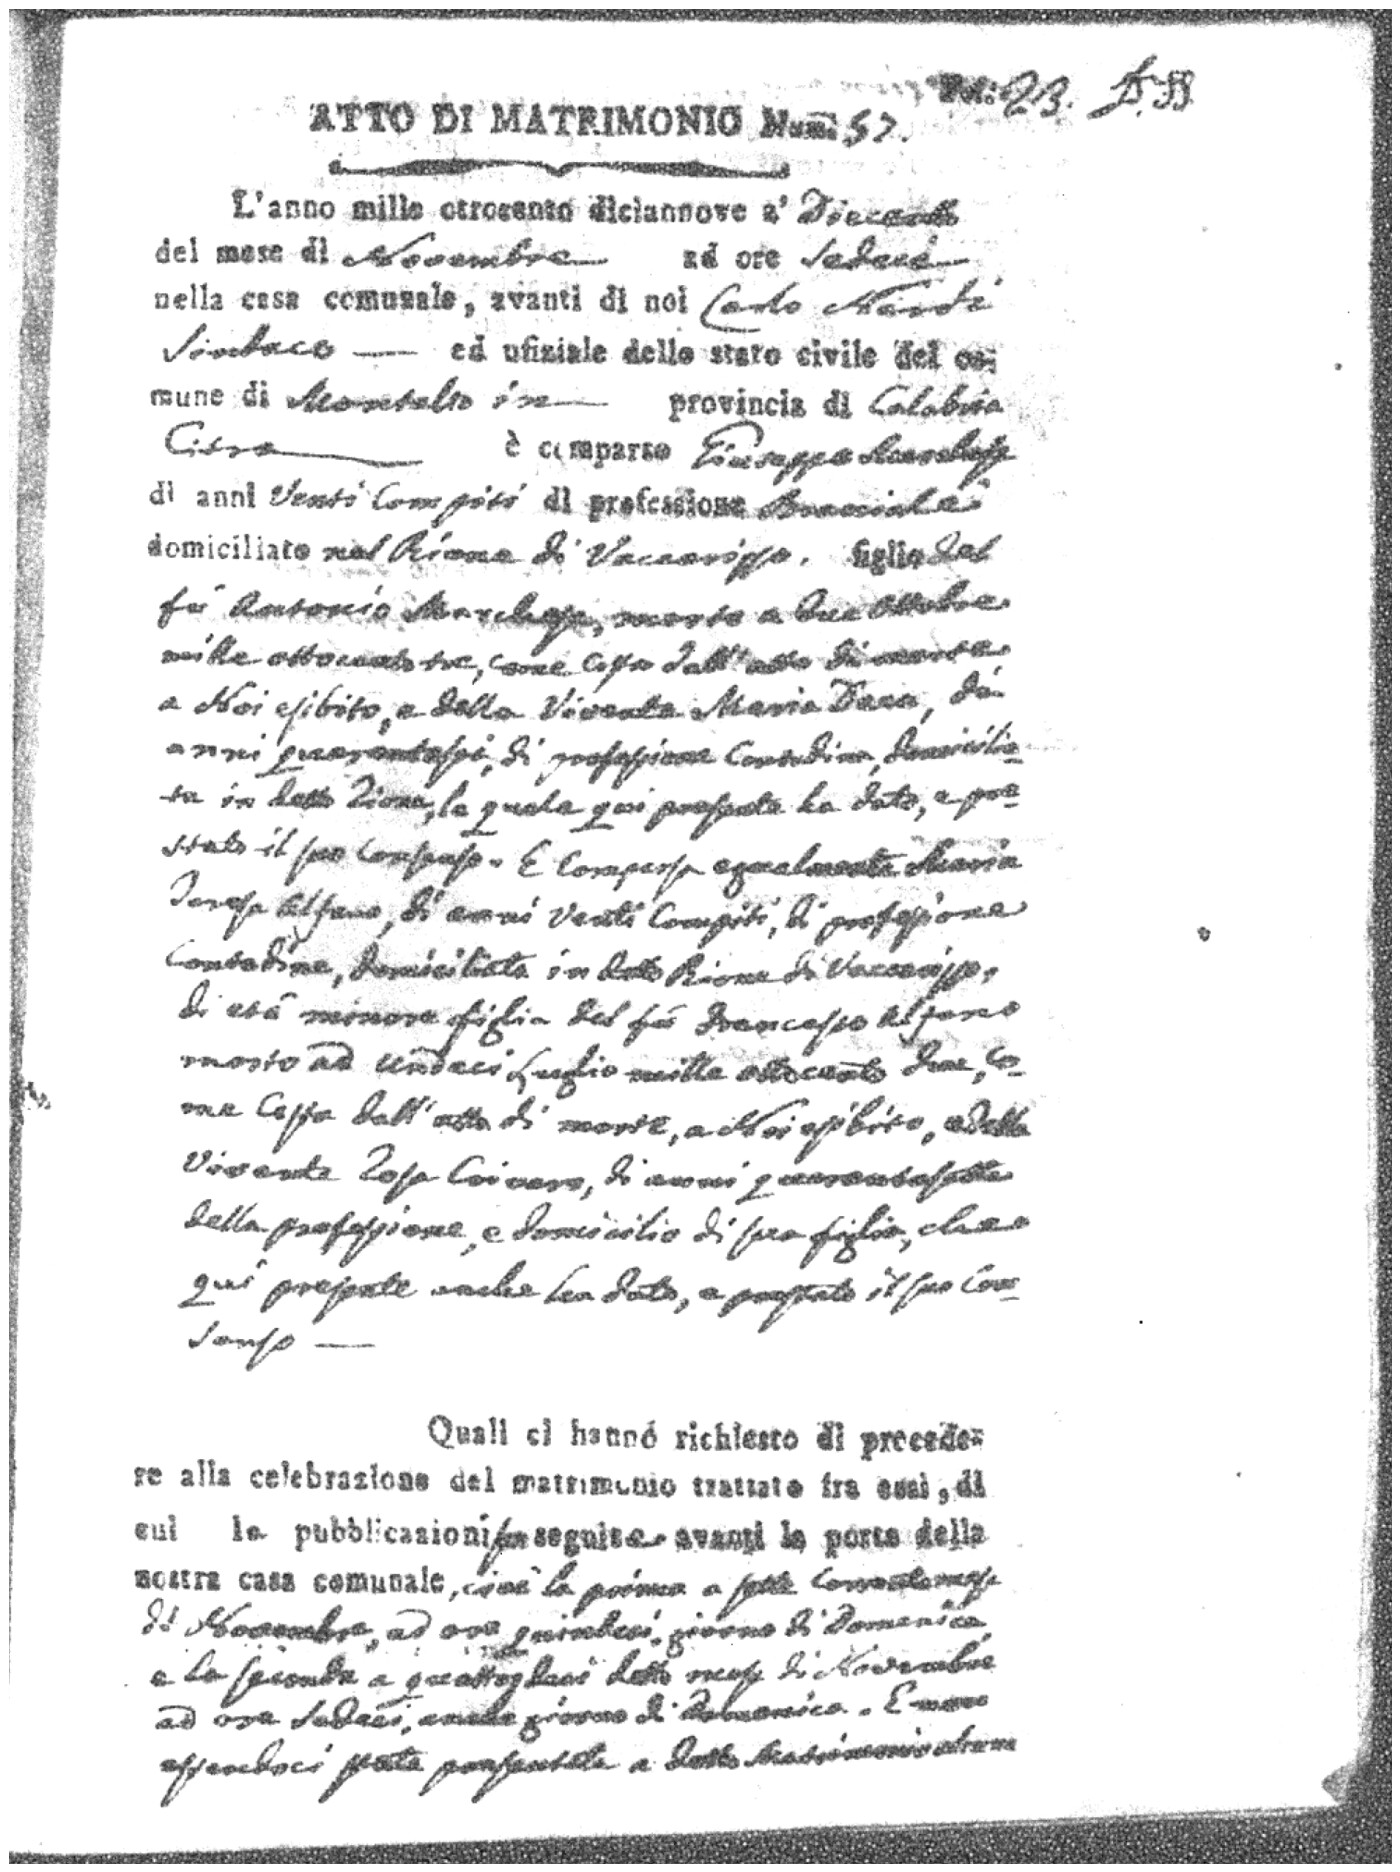 Fol: 23.
ATTO DI MATRIMONIO Num. 57.
L'anno mille ottocento diciannove a' Dieceotto
del mese di Novembre ad ore Sedeci
nella casa comunale, avanti di noi Carlo Nardi
Sindaco ed ufiziale dello stato civile del co-
mune di Montalto in provincia di Calabria
Citra è comparso Giuseppe Marchese
di anni Venti Compiti di professione Bracciale
domiciliato nel Rione di Vaccarizzo. figlio del
fù Antonio Marchese, morto a due Ottobre
mille ottocento tre, come costa dall'atto di morte
a Noi esibito, e della Vivente Maria Dera, di
anni quarantasei, di professione Contadina, domicilia-
ta in detto Rione, la quale qui presente ha dato, e pre-
stato il suo consenso. E comparsa egualmente Maria
Teresa Alfano, di anni Venti Compiti, di professione
Contadina, domiciliata in detto Rione di Vaccarizzo,
di età minore figlia del fù Francesco Alfano
morto ad undeci Luglio mille ottocento due, co-
me costa dall'atto di morte, a Noi esibito, e della
Vivente Rosa Crivaro, di anni quarantasette
della professione, e domicilio di sua figlia, che
qui presente anche ha dato, e prestato il suo Con-
senso
Quali ci hanno richiesto di procede-
re alla celebrazione del matrimonio trattato fra essi, di
cui le pubblicazioni seguite avanti la porta della
nostra casa comunale, cioè la prima a sette corrente mese
di Novembre, ad ore quindeci, giorno di Domenica,
e la seconda a quattordeci detto mese di Novembre
ad ore Sedeci, anche giorno di Domenica. E non
essendoci stata presentata a detto Matrimonio alcuna